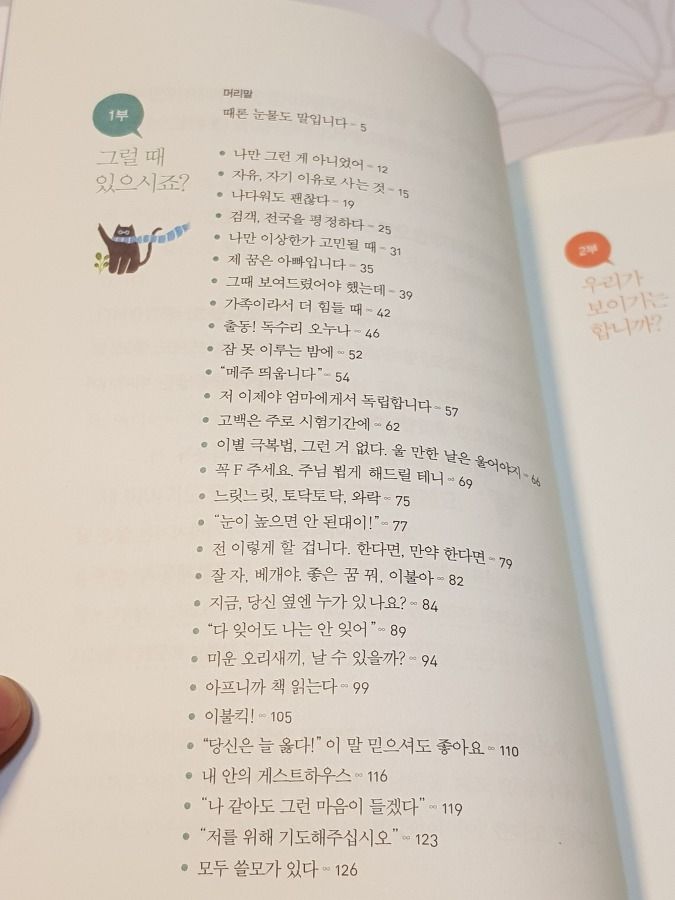 머리말
때론 눈물도 말입니다 ∞ 5
1부
그럴 때
있으시죠?
나만 그런 게 아니었어 ∞ 12
자유, 자기 이유로 사는 것 ∞ 15
나다워도 괜찮다 ∞ 19
검객, 전국을 평정하다 ∞ 25
나만 이상한가 고민될 때 ∞ 31
제 꿈은 아빠입니다 ∞ 35
그때 보여드렸어야 했는데 ∞ 39
가족이라서 더 힘들 때 ∞ 42
출동! 독수리 오누나 ∞ 46
잠 못 이루는 밤에 ∞ 52
“메주 띄웁니다” ∞ 54
저 이제야 엄마에게서 독립합니다 ∞ 57
고백은 주로 시험기간에 ∞ 62
이별 극복법, 그런 거 없다. 울 만한 날은 울어야지 ∞ 66
꼭 F 주세요. 주님 뵙게 해드릴 테니 ∞ 69
느릿느릿, 토닥토닥, 와락 ∞ 75
“눈이 높으면 안 된대이!” ∞ 77
전 이렇게 할 겁니다. 한다면, 만약 한다면 ∞ 79
잘 자, 베개야. 좋은 꿈 꿔, 이불아 ∞ 82
지금, 당신 옆엔 누가 있나요? ∞ 84
“다 잊어도 나는 안 잊어” ∞ 89
미운 오리새끼, 날 수 있을까? ∞ 94
아프니까 책 읽는다 ∞ 99
이불킥! ∞ 105
“당신은 늘 옳다!” 이 말 믿으셔도 좋아요 ∞ 110
내 안의 게스트하우스 ∞ 116
“나 같아도 그런 마음이 들겠다” ∞ 119
“저를 위해 기도해주십시오” ∞ 123
모두 쓸모가 있다 ∞ 126
2부
우리가
보이기는
합니까?